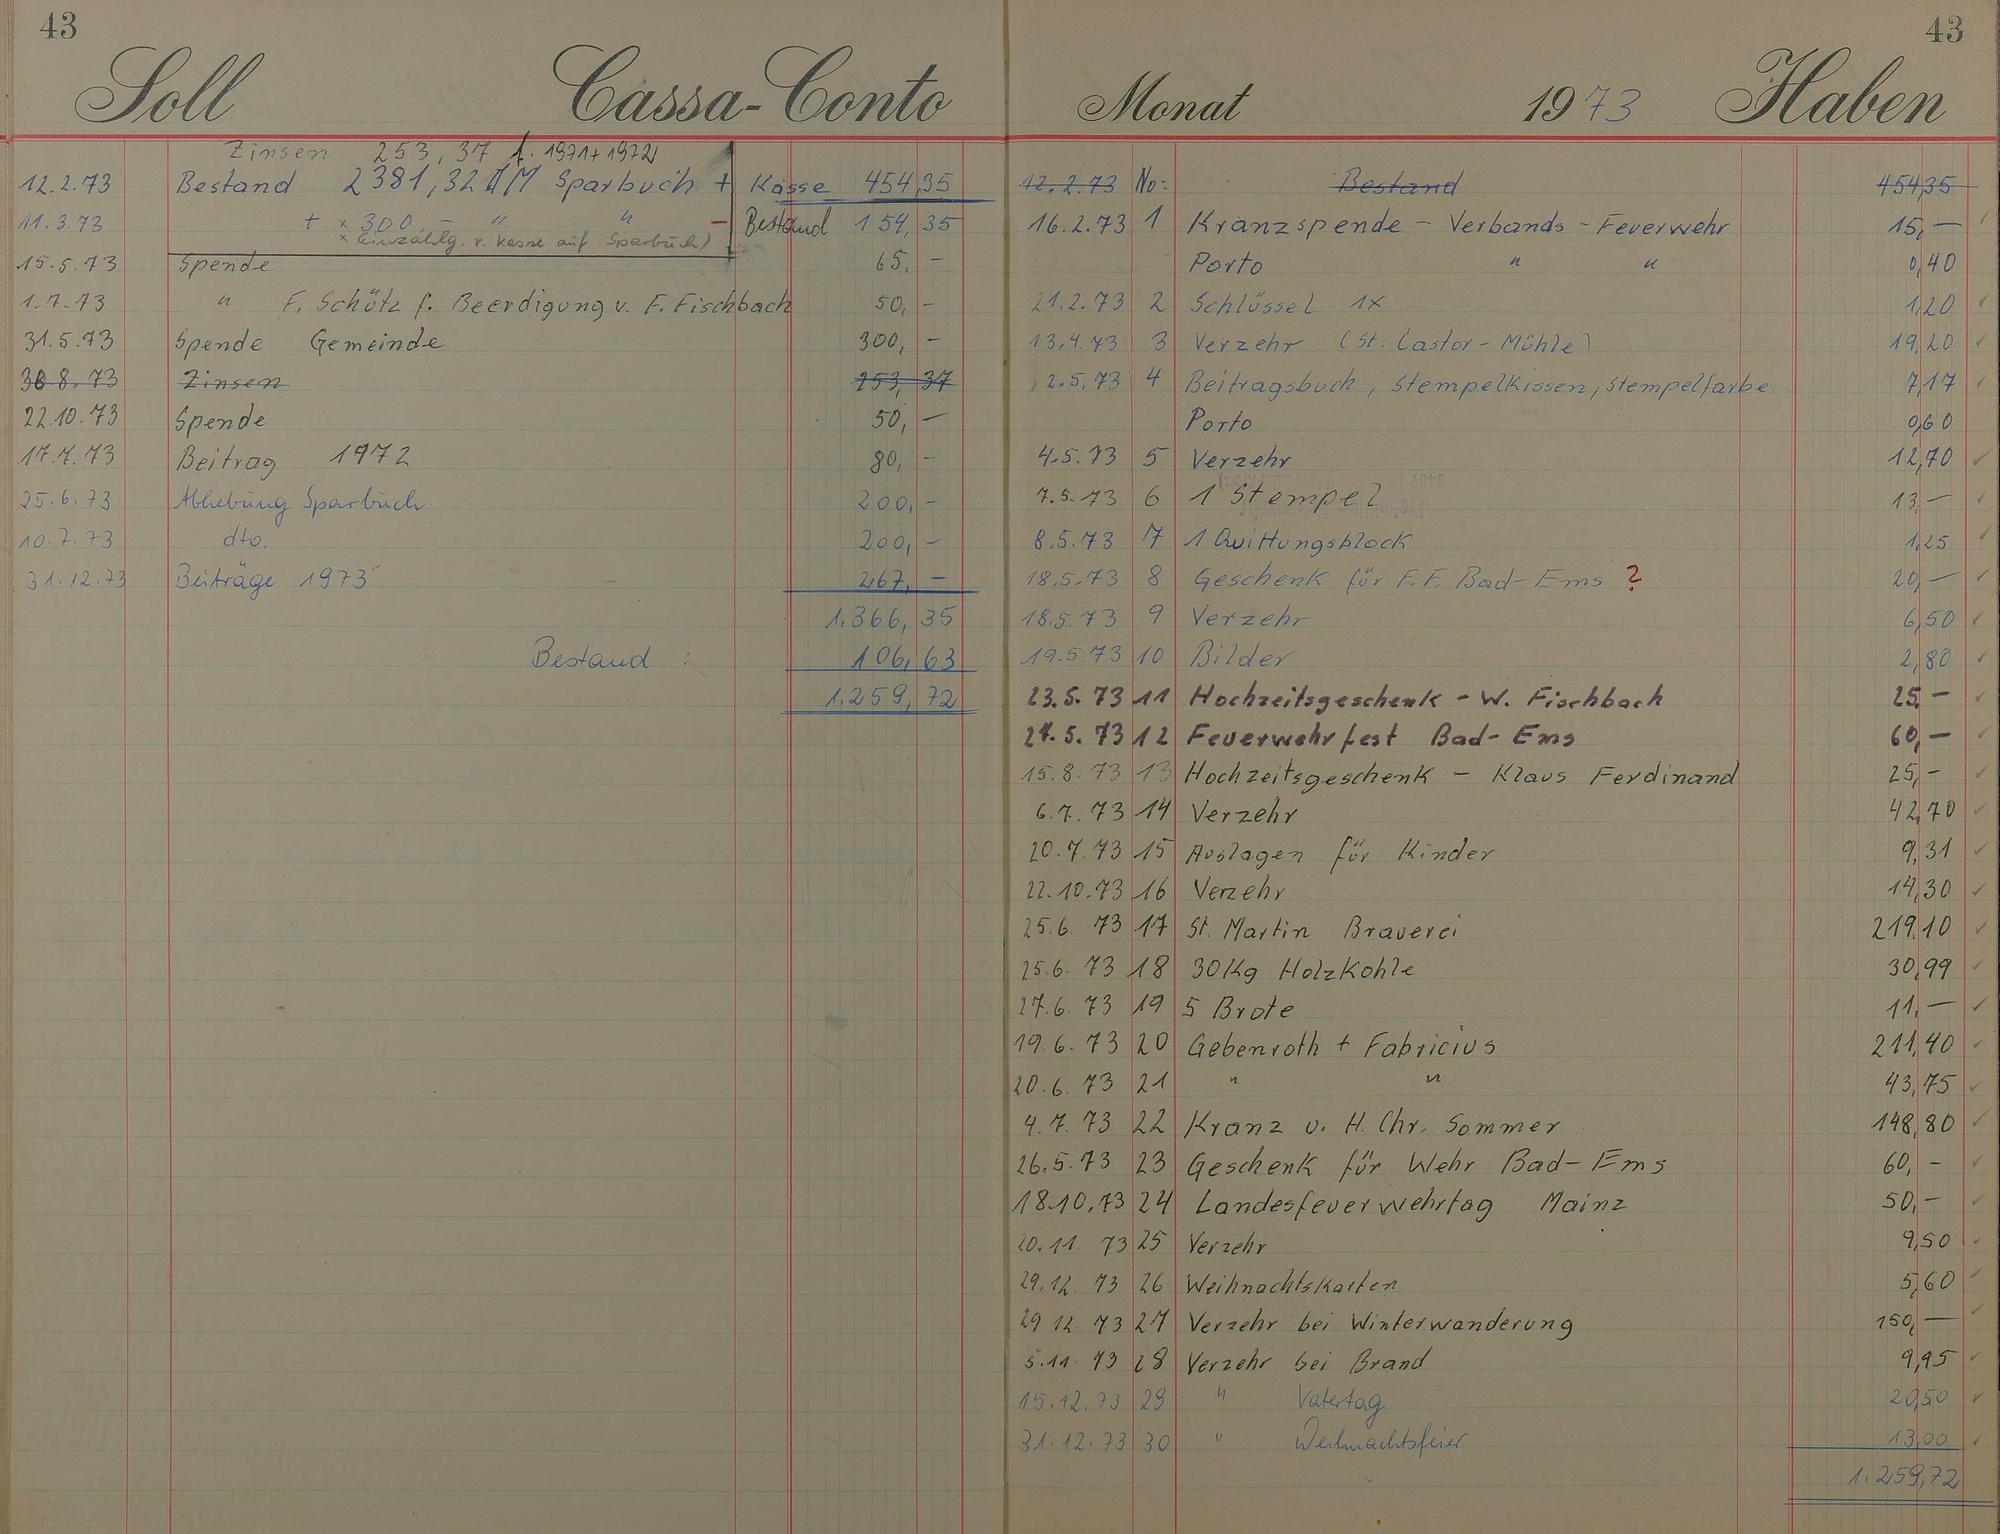 43
Soll Cassa-Conto
Zinsen 253,37 f. 1971+1972
12.2.73 Bestand 2381,32 DM Sparbuch + Kasse 454,35
11.3.73 + × 300 - " " - Bestand 154,35
× Einzahlg. v. Kasse auf Sparbuch)
15.5.73 Spende 65,-
1.7.73 " F. Schütz f. Beerdigung v. F. Fischbach 50,-
31.5.73 Spende Gemeinde 300,-
30.8.73 Zinsen 253,37
22.10.73 Spende 50,-
17.7.73 Beitrag 1972 80,-
25.6.73 Abhebung Sparbuch 200,-
10.7.73 dto. 200,-
31.12.73 Beiträge 1973 267,-
1.366,35
Bestand : 106,63
1.259,72
43
Monat 1973 Haben
12.2.73 No: Bestand 454,35
16.2.73 1 Kranzspende - Verbands - Feuerwehr 15,-
Porto " " 0,40
21.2.73 2 Schlüssel 1x 1,20
13.4.73 3 Verzehr (St. Castor-Mühle) 19,20
2.5.73 4 Beitragsbuch, Stempelkissen, Stempelfarbe 7,17
Porto 0,60
4.5.73 5 Verzehr 12,70
7.5.73 6 1 Stempel 13,-
8.5.73 7 1 Quittungsblock 1,25
18.5.73 8 Geschenk für F.F. Bad-Ems ? 20,-
18.5.73 9 Verzehr 6,50
19.5.73 10 Bilder 2,80
23.5.73 11 Hochzeitsgeschenk - W. Fischbach 25,-
27.5.73 12 Feuerwehrfest Bad-Ems 60,-
15.8.73 13 Hochzeitsgeschenk - Klaus Ferdinand 25,-
6.7.73 14 Verzehr 42,70
20.7.73 15 Auslagen für Kinder 9,31
22.10.73 16 Verzehr 14,30
25.6.73 17 St. Martin Brauerei 219,10
25.6.73 18 30Kg Holzkohle 30,99
27.6.73 19 5 Brote 11,-
19.6.73 20 Gebenroth + Fabricius 211,40
20.6.73 21 " " 43,75
4.7.73 22 Kranz v. H. Chr. Sommer 148,80
26.5.73 23 Geschenk für Wehr Bad-Ems 60,-
18.10.73 24 Landesfeuerwehrtag Mainz 50,-
20.11.73 25 Verzehr 9,50
29.12.73 26 Weihnachtskarten 5,60
29.12.73 27 Verzehr bei Winterwanderung 150,-
5.11.73 28 Verzehr bei Brand 9,95
15.12.73 29 " Vatertag 20,50
31.12.73 30 " Weihnachtsfeier 13,00
1.259,72